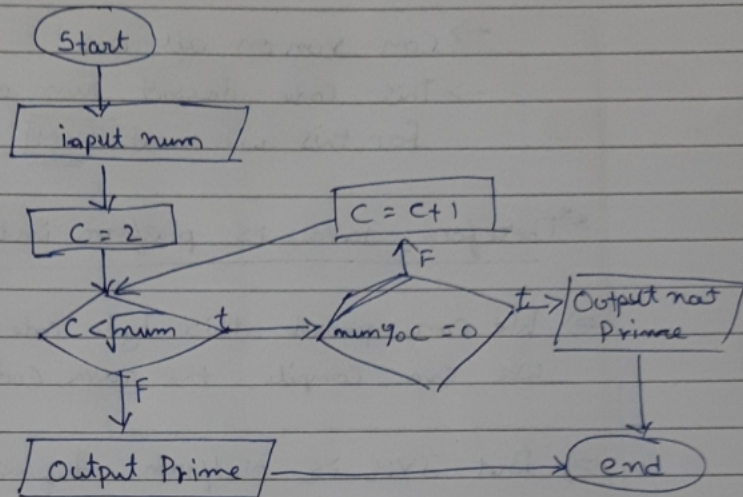 Start
input num
C = 2
C = C+1
F
C < √num
t
num%C = 0
t
Output not
Prime
F
Output Prime
end